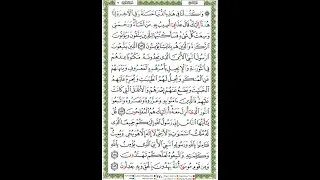 ۞ وَٱكۡتُبۡ لَنَا فِي هَٰذِهِ ٱلدُّنۡيَا حَسَنَةٗ وَفِي ٱلۡأٓخِرَةِ إِنَّا
هُدۡنَآ إِلَيۡكَۚ قَالَ عَذَابِيٓ أُصِيبُ بِهِۦ مَنۡ أَشَآءُۖ وَرَحۡمَتِي
وَسِعَتۡ كُلَّ شَيۡءٖۚ فَسَأَكۡتُبُهَا لِلَّذِينَ يَتَّقُونَ وَيُؤۡتُونَ
ٱلزَّكَوٰةَ وَٱلَّذِينَ هُم بِـَٔايَٰتِنَا يُؤۡمِنُونَ ١٥٦ ٱلَّذِينَ يَتَّبِعُونَ
ٱلرَّسُولَ ٱلنَّبِيَّ ٱلۡأُمِّيَّ ٱلَّذِي يَجِدُونَهُۥ مَكۡتُوبًا عِندَهُمۡ
فِي ٱلتَّوۡرَىٰةِ وَٱلۡإِنجِيلِ يَأۡمُرُهُم بِٱلۡمَعۡرُوفِ وَيَنۡهَىٰهُمۡ
عَنِ ٱلۡمُنكَرِ وَيُحِلُّ لَهُمُ ٱلطَّيِّبَٰتِ وَيُحَرِّمُ عَلَيۡهِمُ
ٱلۡخَبَٰٓئِثَ وَيَضَعُ عَنۡهُمۡ إِصۡرَهُمۡ وَٱلۡأَغۡلَٰلَ ٱلَّتِي كَانَتۡ
عَلَيۡهِمۡۚ فَٱلَّذِينَ ءَامَنُواْ بِهِۦ وَعَزَّرُوهُ وَنَصَرُوهُ وَٱتَّبَعُواْ
ٱلنُّورَ ٱلَّذِيٓ أُنزِلَ مَعَهُۥٓ أُوْلَٰٓئِكَ هُمُ ٱلۡمُفۡلِحُونَ ١٥٧
قُلۡ يَٰٓأَيُّهَا ٱلنَّاسُ إِنِّي رَسُولُ ٱللَّهِ إِلَيۡكُمۡ جَمِيعًا ٱلَّذِي
لَهُۥ مُلۡكُ ٱلسَّمَٰوَٰتِ وَٱلۡأَرۡضِۖ لَآ إِلَٰهَ إِلَّا هُوَ يُحۡيِۦ وَيُمِيتُۖ
فَـَٔامِنُواْ بِٱللَّهِ وَرَسُولِهِ ٱلنَّبِيِّ ٱلۡأُمِّيِّ ٱلَّذِي يُؤۡمِنُ بِٱللَّهِ
وَكَلِمَٰتِهِۦ وَٱتَّبِعُوهُ لَعَلَّكُمۡ تَهۡتَدُونَ ١٥٨
وَمِن قَوۡمِ مُوسَىٰٓ أُمَّةٞ يَهۡدُونَ بِٱلۡحَقِّ وَبِهِۦ يَعۡدِلُونَ ١٥٩